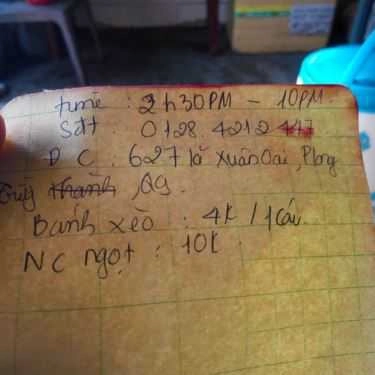 time : 2h30PM - 10PM.
Sđt : 0128 4212 447
Đ C : 627 lã Xuân Oai, Plong
Trường Thạnh, Q9.
Bánh xèo : 4k / 1cái
NC ngọt : 10k